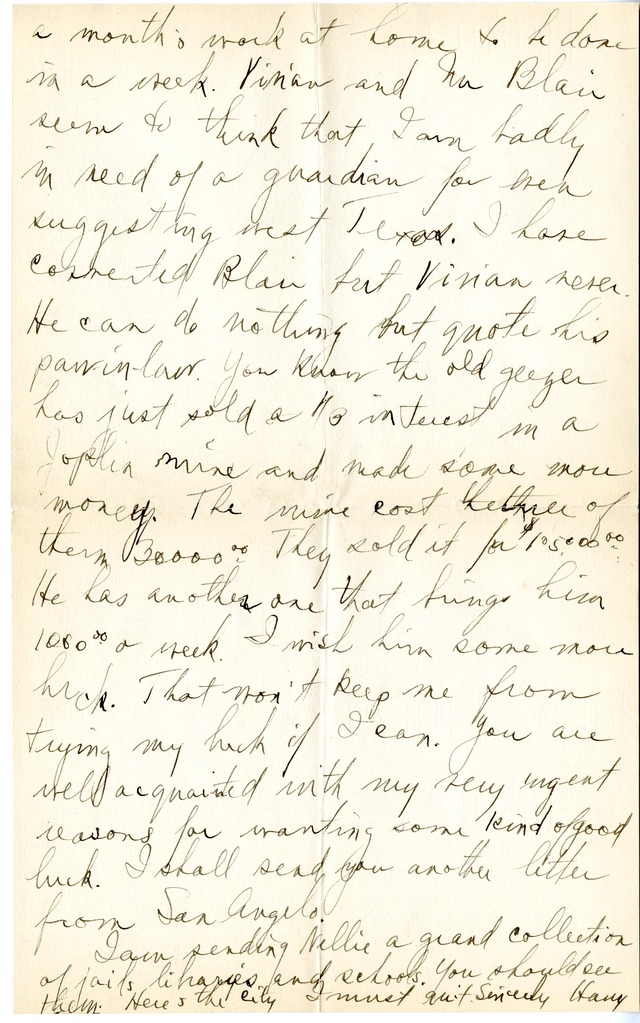 a month's work at home to be done
in a week. Vivian and Mr Blair
seem to think that I am badly
in need of a guardian for even
suggesting west Texas. I have
converted Blair but Vivian never.
He can do nothing but quote his
paw-in-law. You know the old geezer
has just sold a 1/3 interest in a
Joplin mine and made some more
money. The mine cost three of
them 30000⁰⁰. They sold it for $105000⁰⁰.
He has another one that brings him
1000⁰⁰ a week. I wish him some more
luck. That won't keep me from
trying my luck if I can. You are
well acquainted with my very urgent
reasons for wanting some kind of good
luck. I shall send you another letter
from San Angelo.
I am sending Nellie a grand collection
of jails, libraries, and schools. You should see
them. Here's the city I must quit Sincerely Harry